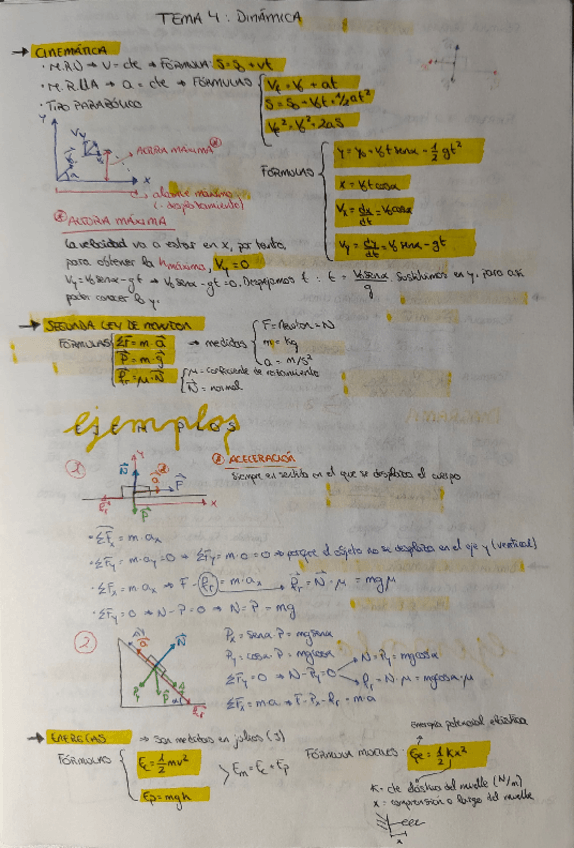 TEMA 4: DINÁMICA
→ CINEMÁTICA
· M.R.U → v = cte → FÓRMULA: S = S₀ + vt
· M.R.U.A → a = cte → FÓRMULAS
Vf = V₀ + at
S = S₀ + V₀t + ½at²
Vf² = V₀² + 2aS
· TIRO PARABÓLICO
Y
Vy
V₀
α
X
ALTURA MÁXIMA
alcance máximo
(desplazamiento)
FÓRMULAS
y = y₀ + V₀t senα - 1/2 gt²
x = V₀t cosα
Vx = dx/dt = V₀cosα
Vy = dy/dt = V₀ senα - gt
ALTURA MÁXIMA
La velocidad va a estar en x, por tanto,
para obtener la h máxima, Vy = 0
Vy = V₀ senα - gt → V₀ senα - gt = 0. Despejamos t : t = V₀ senα/g Sustituimos en y, para así
poder conocer la y.
→ SEGUNDA LEY DE NEWTON
FÓRMULAS
ΣF = m·a
P = m·g
Fr = μ·N
→ medidas
F = Newton = N
m = Kg
a = m/s²
μ = coeficiente de rozamiento
N = normal
ejemplos
EJEMPLOS
1
Y
N
a
F
Fr
P
X
ACELERACIÓN
Siempre en sentido en el que se desplaza el cuerpo
· ΣFx = m·ax
· ΣFy = m·ay = 0 → ΣFy = m·0 = 0 → porque el objeto no se desplaza en el eje y (vertical)
· ΣFx = m·ax → F - Fr = m·ax → Fr = N·μ = mgμ
· ΣFy = 0 → N - P = 0 → N = P = mg
2
N
P
α
Fr
Px = senα·P = mg senα
Py = cosα·P = mg cosα
ΣFy = 0 → N - Py = 0
N = Py = mg cosα
Fr = N·μ = mg cosα·μ
ΣFx = m·a → F - Px - Fr = m·a
→ ENERGÍAS → Son medidas en julios (J)
FÓRMULAS
Ec = 1/2 mv²
Ep = mgh
Em = Ec + Ep
Energía potencial elástica
FÓRMULA MUELLES · Epe = 1/2 Kx²
K = cte elástica del muelle (N/m)
X = compresión o largo del muelle
x